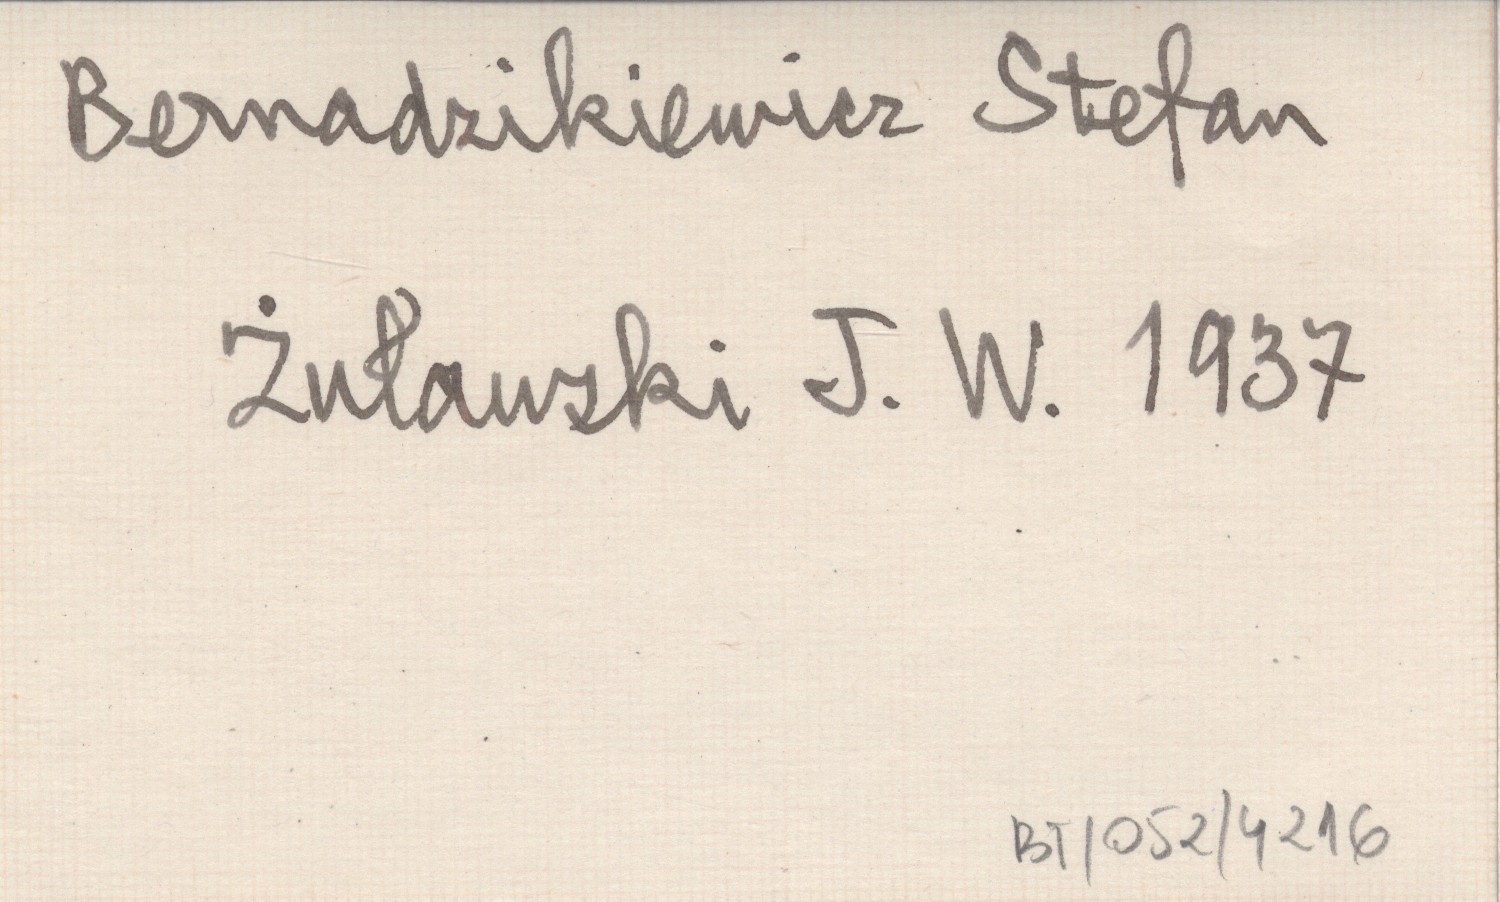 Bernadzikiewicz Stefan
Żuławski J. W. 1937
BT/052/4216